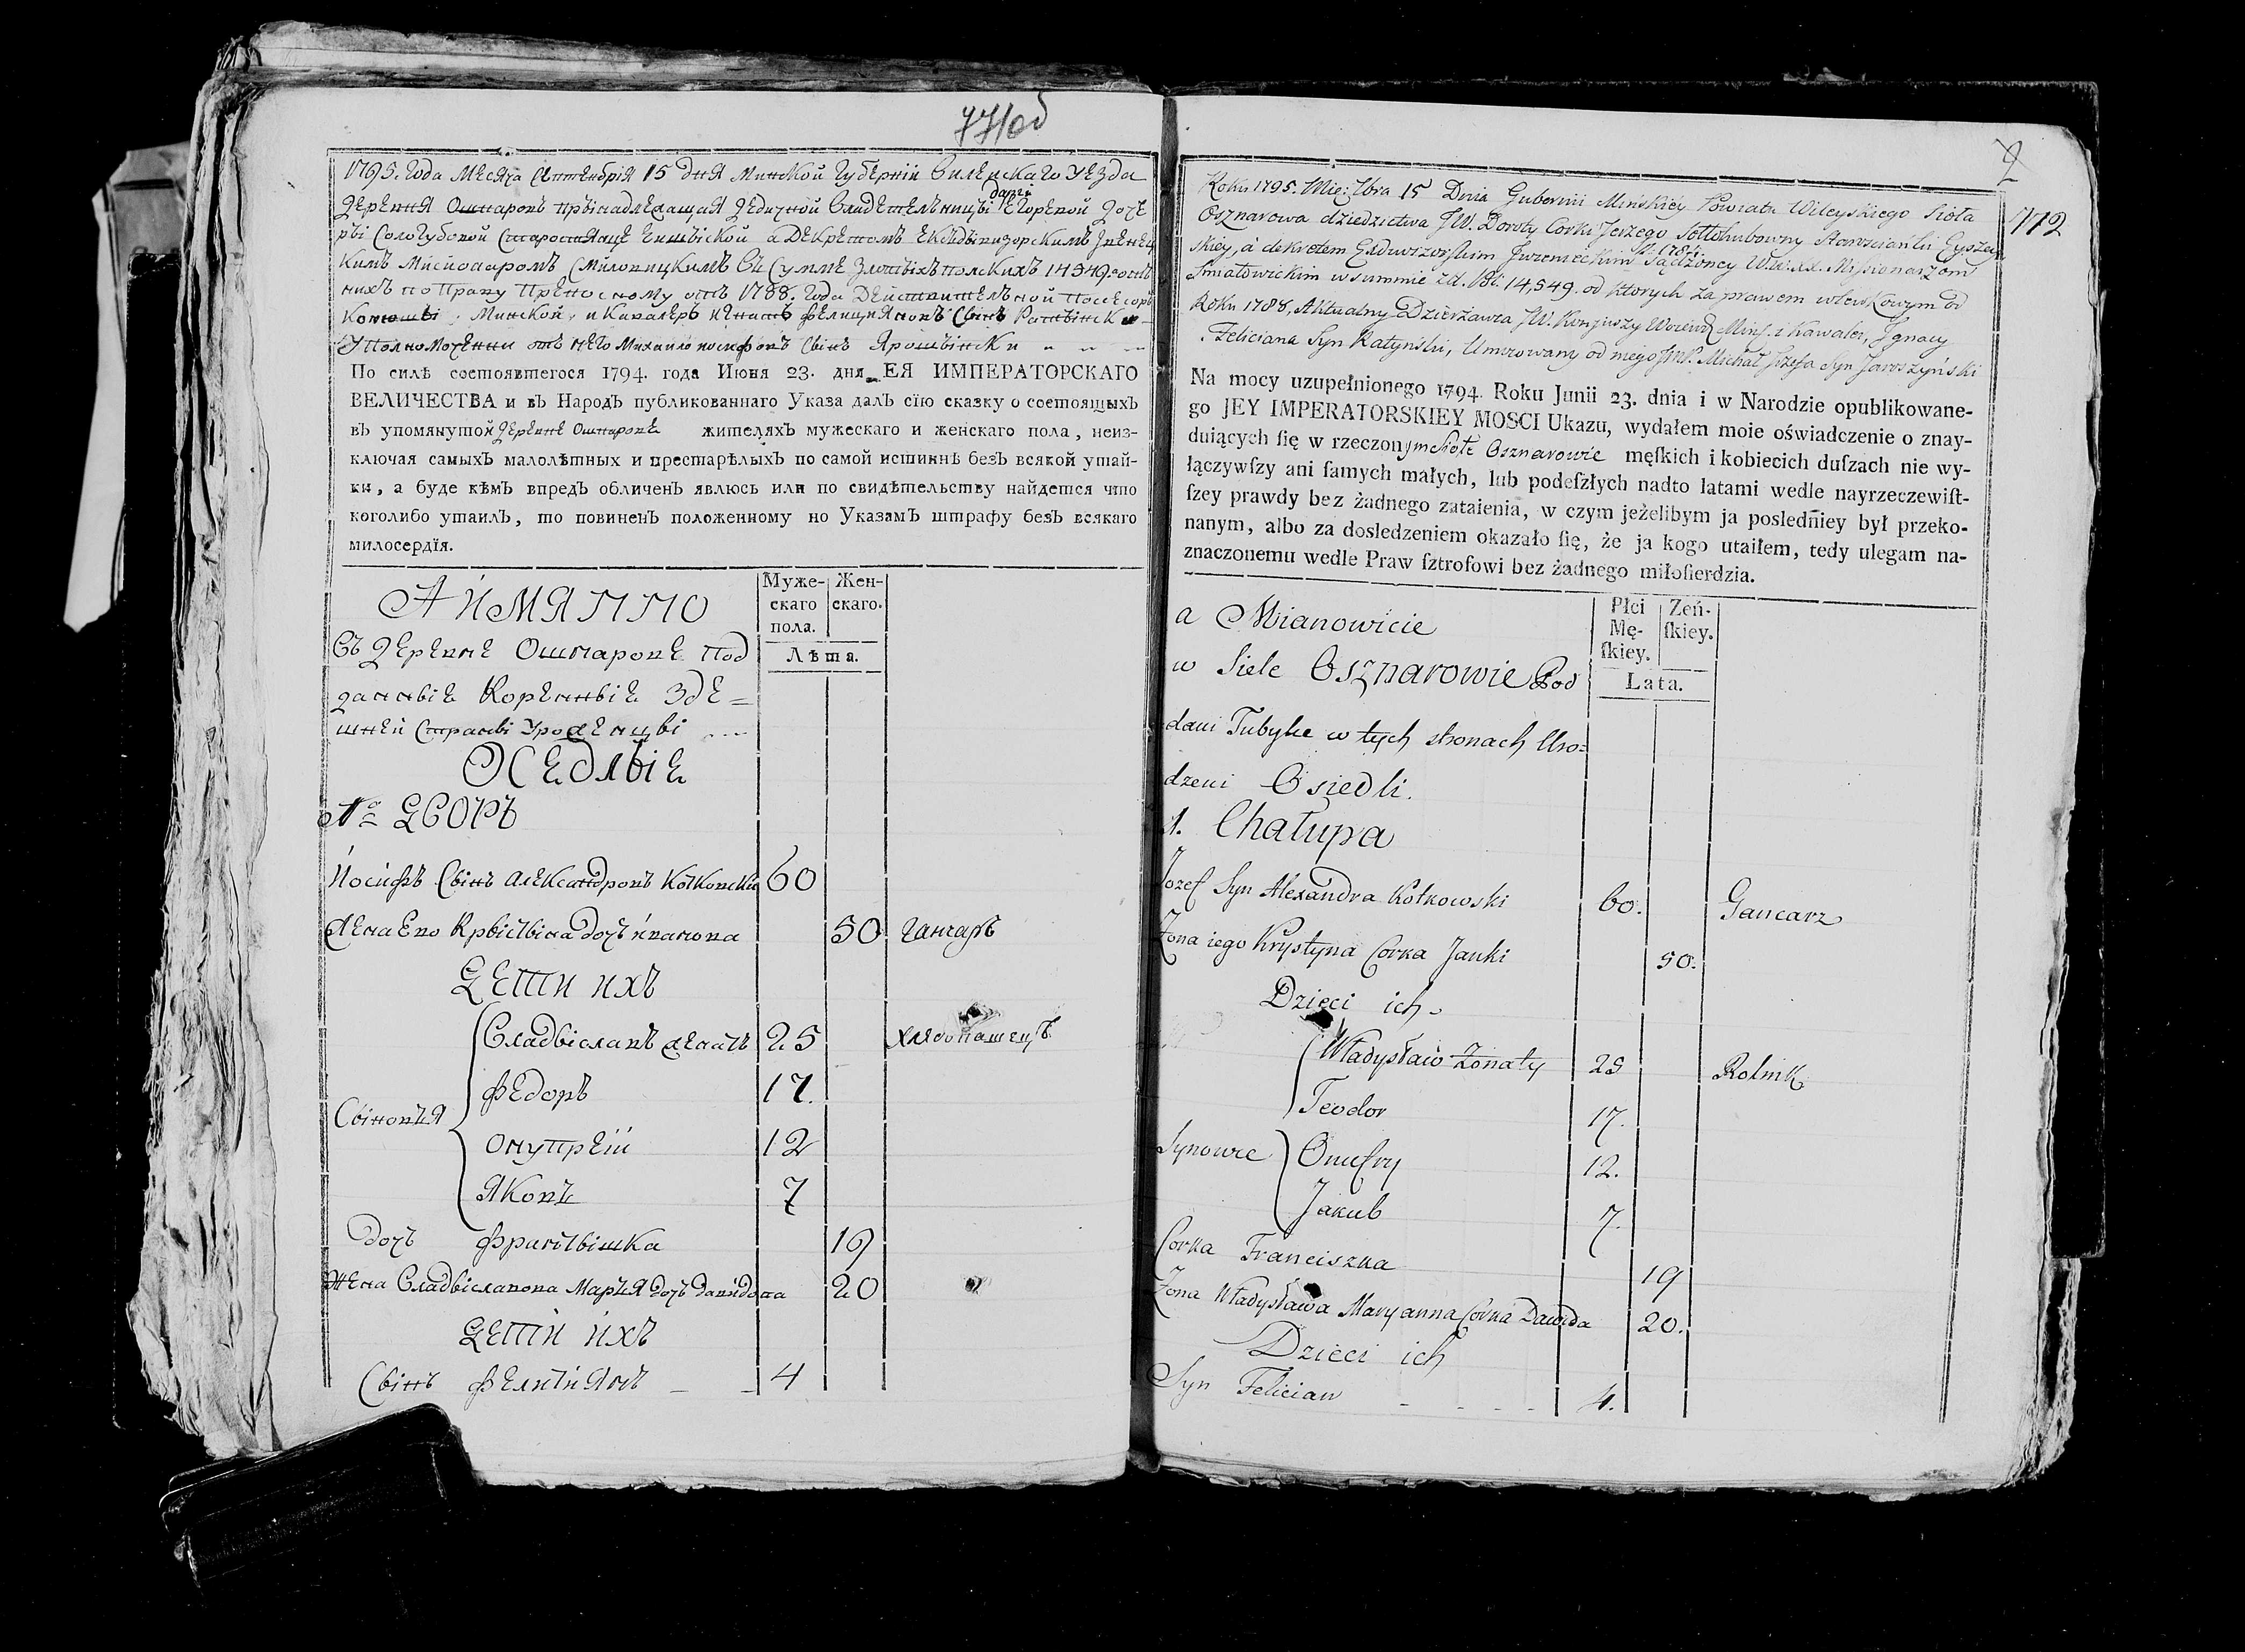 771об
1795. Года Месяца Септембрія 15 дня Минской Губерніи Вилейскаго Уезда
деревня Ошнаровъ прынадлежащая дедичной владетельницы Егоревой доче
ры Сологубовой а декретомъ Ексдывизорскимъ
кимъ Мисионаромъ Смиловицкимъ въ сумме злотыхъ полскихъ 14549
нихъ по праву отъ 1788. Года действителной посесоръ
Минской, и Кавалеръ Игнатъ Фелициановъ сынъ
Уполномоченни отъ него Михайло сынъ Ярошынски
По силѣ состоявшегося 1794. года Июня 23. дня ЕЯ ИМПЕРАТОРСКАГО
ВЕЛИЧЕСТВА и въ Народъ публикованнаго Указа далъ сїю сказку о состоящыхъ
въ упомянутой деревне Ошнарове жителяхъ мужескаго и женскаго пола, неиз-
ключая самыхъ малолѣтных и престарѣлыхъ по самой истиннѣ безъ всякой утай-
ки, а буде кѣмъ впредъ обличенъ явлюсь или по свидѣтельству найдется что
коголибо утаилъ, то повиненъ положенному по Указамъ штрафу безъ всякаго
милосердїя.
А ИМЯННО
Муже-
скаго
пола.
Жен-
скаго.
Лѣта.
Въ деревне Ошнарове под
данныіе коренныіе зде=
шней страны уроженцы
Оседлыіе
№ 1 Дворъ
Иосифъ сынъ Александровъ Колковски 60
Жена Ево Крыстына дочъ Иванова 50 Ганчаръ
Дети ихъ
Сыновья
Владыславъ женатъ 25 хлебопашецъ
Федоръ 17.
Онупрей 12
Яковъ 7
дочъ Францышка 19
Жена Владыславова Марья дочъ Давидова 20
Дети ихъ
Сынъ Фелициянъ 4
772
Roku 1795. Mie: 7bra 15 Dnia Gubernii Mińskiey Powiatu Wileyskiego Sioła
Osznarowa dziedzictwa JW. Doroty Corki Jerzego Sołłohubowny
skiey, a dekretem Exdywizorskim W.W. XX. Missionarzom
Smiłowickim w summie zł. 14,549. od ktorych za prawem wlewkowym od
Roku 1788, Aktualny Dzierżawca JW. Koniuszy Mins. i Kawaler, Ignacy
Feliciana Syn Ratyński, Umocowany od niego Michał Jozefa Syn Jaroszyński
Na mocy uzupełnionego 1794. Roku Junii 23. dnia i w Narodzie opublikowane-
go JEY IMPERATORSKIEY MOSCI Ukazu, wydałem moie oświadczenie o znay-
duiących ſię w rzeczonym Siole Osznarowie męſkich i kobiecich duſzach nie wy-
łączywſzy ani ſamych małych, lub podeſzłych nadto latami wedle nayrzeczewiſt-
ſzey prawdy bez żadnego zataienia, w czym jeżelibym ja posledniey był przeko-
nanym, albo za dosledzeniem okazało ſię, że ja kogo utaiłem, tedy ulegam na-
znaczonemu wedle Praw ſztrofowi bez żadnego miłoſierdzia.
a Mianowicie
Płci
Mę-
ſkiey.
Zeń-
ſkiey.
Lata.
w Siele Osznarowie Pod
dani Tubylce w tych stronach Uro=
dzeni Osiedli.
1. Chałupa
Jozef Syn Alexandra Kołkowski 60. Gancarz
Zona iego Krystyna Corka Janki 50.
Dzieci ich
Synowie
Władysław Zonaty 25 Rolnik
Teodor 17.
Onufry 12.
Jakub 7.
Corka Franciszka 19
Zona Władysława Maryanna Corka Dawida 20.
Dzieci ich
Syn Felician 4.